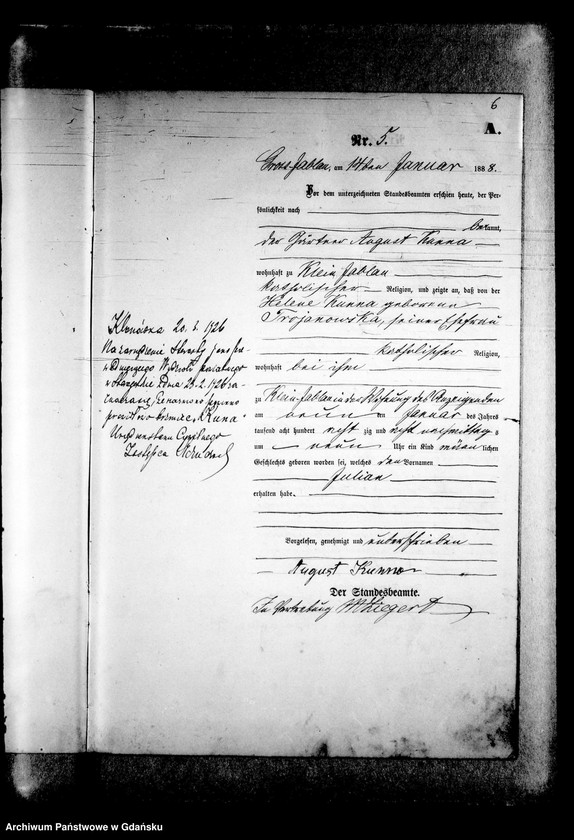 6
A.
Nr. 5.
Gross Jablau, am 14ten Januar 1888.
Vor dem unterzeichneten Standesbeamten erschien heute, der Per-
sönlichkeit nach
bekannt,
der Gärtner August Kunna
wohnhaft zu Klein Jablau
katholischer Religion, und zeigte an, daß von der
Helene Kunna geborene
Trojanowska, seiner Ehefrau
katholischer Religion,
wohnhaft bei ihm
zu Klein Jablau in der Wohnung des Anzeigenden
am neun ten Januar des Jahres
tausend acht hundert acht zig und acht vormittags
um neun Uhr ein Kind männlichen
Geschlechts geboren worden sei, welches den Vornamen
Julian
erhalten habe.
Vorgelesen, genehmigt und unterschrieben
August Kunna
Der Standesbeamte.
In Vertretung
20. 1926
Na zarządzenie
1926
"Kuna"
Urzędnik stanu Cywilnego
Archiwum Państwowe w Gdańsku